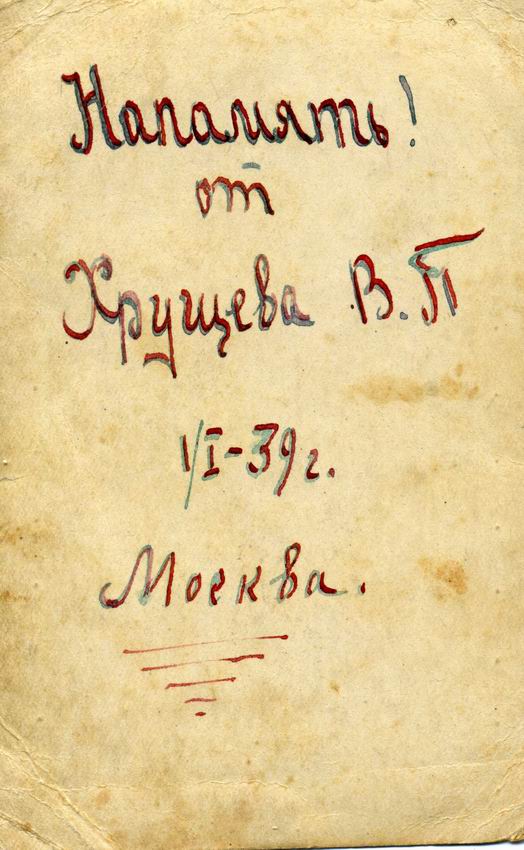 Напамять!
от
Хрущева В.П
1/I-39 г.
Москва.